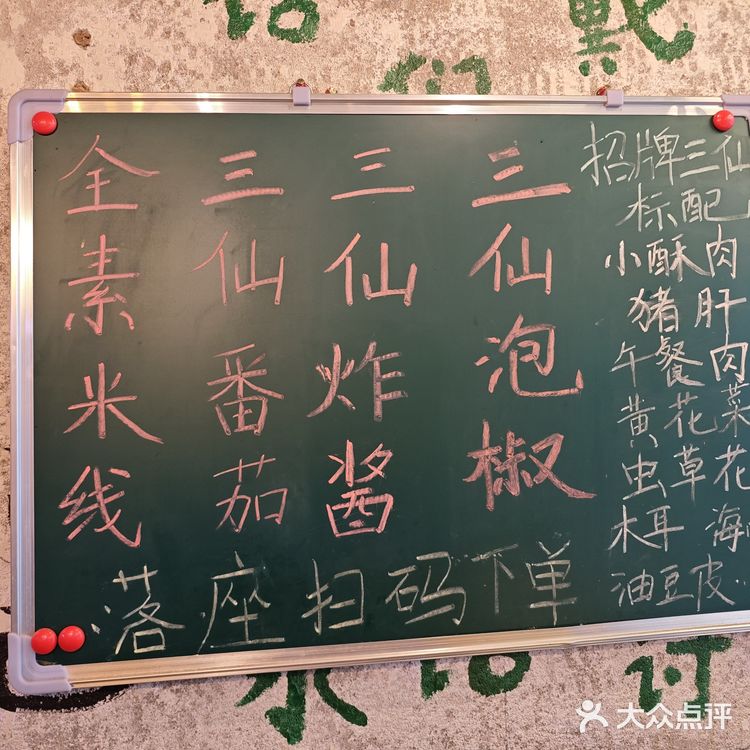 全素米线
三仙番茄
三仙炸酱
三仙泡椒
招牌三仙
标配
小酥肉
猪肝
午餐肉
黄花菜
虫草花
木耳 海
油豆皮
落座扫码下单
大众点评